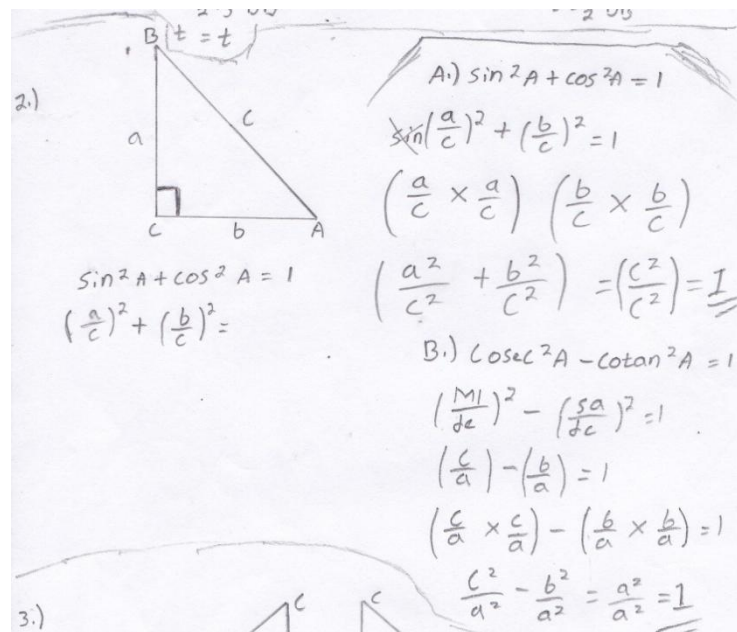 t = t
2.)
B
a
c
C
b
A
sin² A + cos² A = 1
(a/c)² + (b/c)² =
A.) sin²A + cos²A = 1
(a/c)² + (b/c)² = 1
(a/c × a/c) (b/c × b/c)
(a²/c² + b²/c²) = (c²/c²) = 1
B.) Cosec²A - cotan²A = 1
(MI/de)² - (sa/de)² = 1
(c/a) - (b/a) = 1
(c/a × c/a) - (b/a × b/a) = 1
c²/a² - b²/a² = a²/a² = 1
3.)
C
C